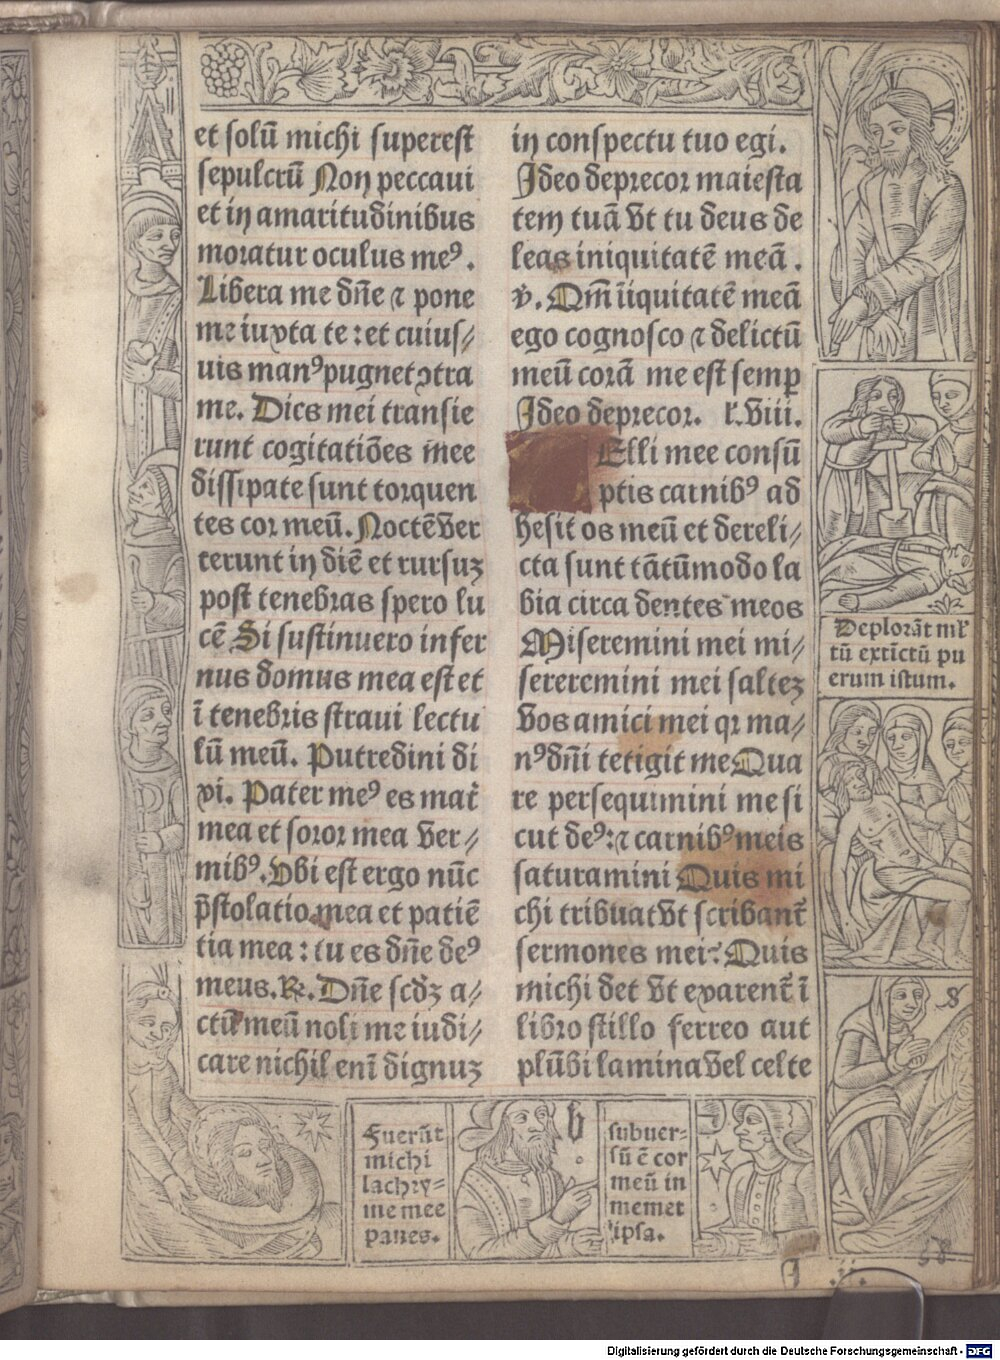 et solū michi superest
sepulcrū Non peccaui
et in amaritudinibus
moratur oculus meꝰ.
Libera me dn̄e ⁊ pone
me iuxta te : et cuius⸗
uis manꝰ pugnet ꝯtra
me. Dies mei transie
runt cogitatiōes mee
dissipate sunt torquen
tes cor meū. Noctē ver
terunt in diē et rursuꝫ
post tenebras spero lu
cē Si sustinuero infer
nus domus mea est et
ī tenebris straui lectu
lū meū. Putredini di
xi. Pater meꝰ es mat̄
mea et soror mea ver⸗
mibꝰ. Vbi est ergo nūc
p̄stolatio mea et patiē
tia mea : tu es dn̄e deꝰ
meus. ℞. Dn̄e scd̄ꝫ a⸗
ctū meū noli me iudi⸗
care nichil enī dignuꝫ
in conspectu tuo egi.
Ideo deprecor maiesta
tem tuā vt tu deus de
leas iniquitatē meā.
v̓. Qm̄ īiquitatē meā
ego cognosco ⁊ delictū
meū corā me est semꝑ
Ideo deprecor. l̓. viii.
Elli mee consū
ptis carnibꝰ ad
hesit os meū et dereli⸗
cta sunt tātūmodo la
bia circa dentes meos
Miseremini mei mi⸗
seremini mei salteꝫ
vos amici mei qꝛ ma⸗
nꝰ dn̄i tetigit me Qua
re persequimini me si
cut deꝰ : ⁊ carnibꝰ meis
saturamini Quis mi
chi tribuat vt scribant̄
sermones mei: Quis
michi det vt exarent̄ ī
libro stillo ferreo aut
plūbi lamina vel celte
Deplorāt ml̓
tū extīctū pu
erum istum.
8
Fuerūt
michi
lachry⸗
me mee
panes.
b
subuer⸗
sū ē cor
meū in
memet
ipsa.
.ii.
58
Digitalisierung gefördert durch die Deutsche Forschungsgemeinschaft - DFG